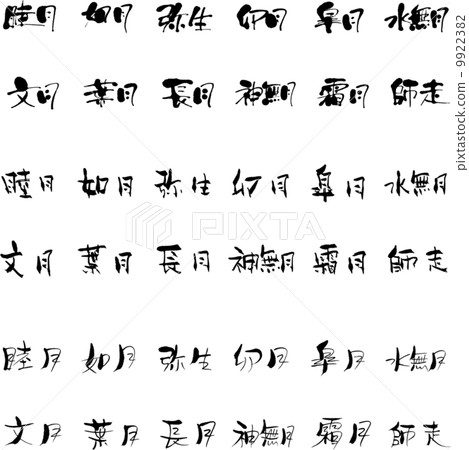 睦月 如月 弥生 卯月 皐月 水無月
文月 葉月 長月 神無月 霜月 師走
睦月 如月 弥生 卯月 皐月 水無月
文月 葉月 長月 神無月 霜月 師走
睦月 如月 弥生 卯月 皐月 水無月
文月 葉月 長月 神無月 霜月 師走
PIXTA
pixtastock.com - 9922382